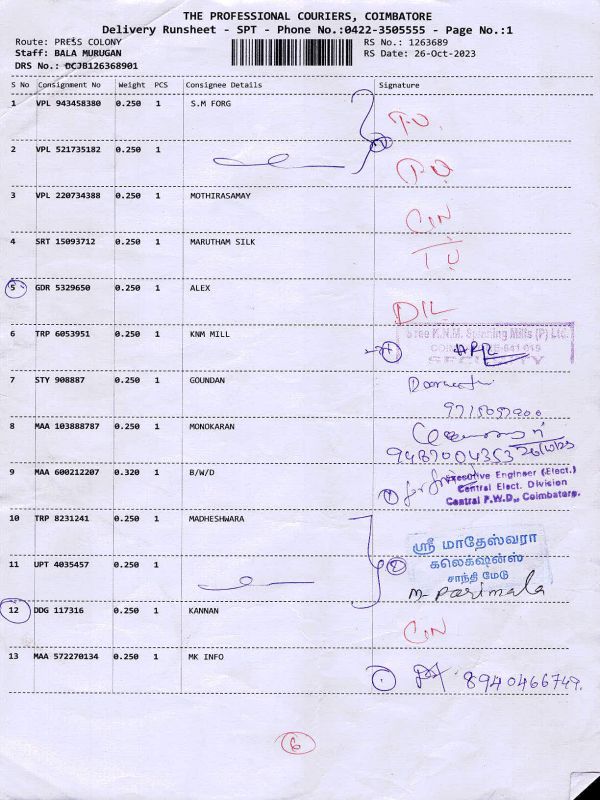 THE PROFESSIONAL COURIERS, COIMBATORE
Delivery Runsheet - SPT - Phone No.:0422-3505555 - Page No.:1
Route: PRESS COLONY
Staff: BALA MURUGAN
DRS No.: DCJB126368901
RS No.: 1263689
RS Date: 26-Oct-2023
S No Consignment No Weight PCS Consignee Details Signature
1 VPL 943458380 0.250 1 S.M FORG
2 VPL 521735182 0.250 1
3 VPL 220734388 0.250 1 MOTHIRASAMAY
CIN
4 SRT 15093712 0.250 1 MARUTHAM SILK
5 GDR 5329650 0.250 1 ALEX
DIL
6 TRP 6053951 0.250 1 KNM MILL
Sree K.N.M. Spinning Mills (P) Ltd.
SECURITY
7 STY 908887 0.250 1 GOUNDAN
8 MAA 103888787 0.250 1 MONOKARAN
9487004353
9 MAA 600212207 0.320 1 B/W/D
Executive Engineer (Elect.)
Central Elect. Division
Central P.W.D., Coimbatore.
10 TRP 8231241 0.250 1 MADHESHWARA
ஸ்ரீ மாதேஸ்வரா
கலெக்ஷன்ஸ்
சாந்தி மேடு
11 UPT 4035457 0.250 1
M. Parimala
12 DDG 117316 0.250 1 KANNAN
CIN
13 MAA 572270134 0.250 1 MK INFO
8940466749.
6